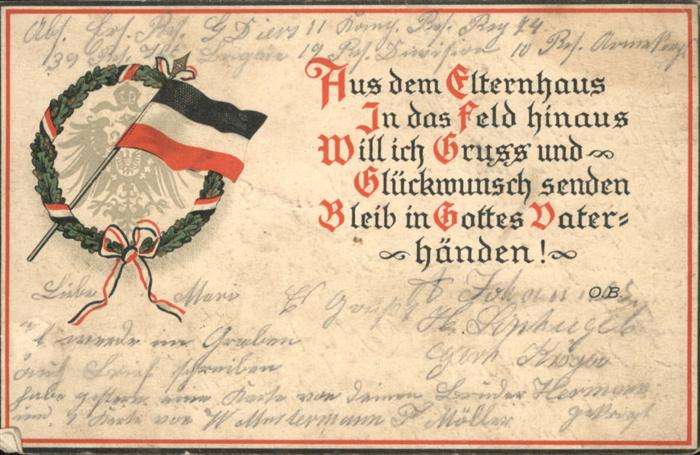 Abs. Ers. Res. G Diers 11 Komp. Res. Reg 74
39 Res. Inf. Brigade 19 Res. Division 10 Res. Armekorps
Aus dem Elternhaus
In das Feld hinaus
Will ich Gruss und
Glückwunsch senden
Bleib in Gottes Vater=
händen!
O.B.
Liebe Marie Es
H.
werde im Graben
Brief schreiben
habe gestern eine Karte von deinen Bruder Hermann
und 1 Karte von W Mustermann F Möller gekriegt